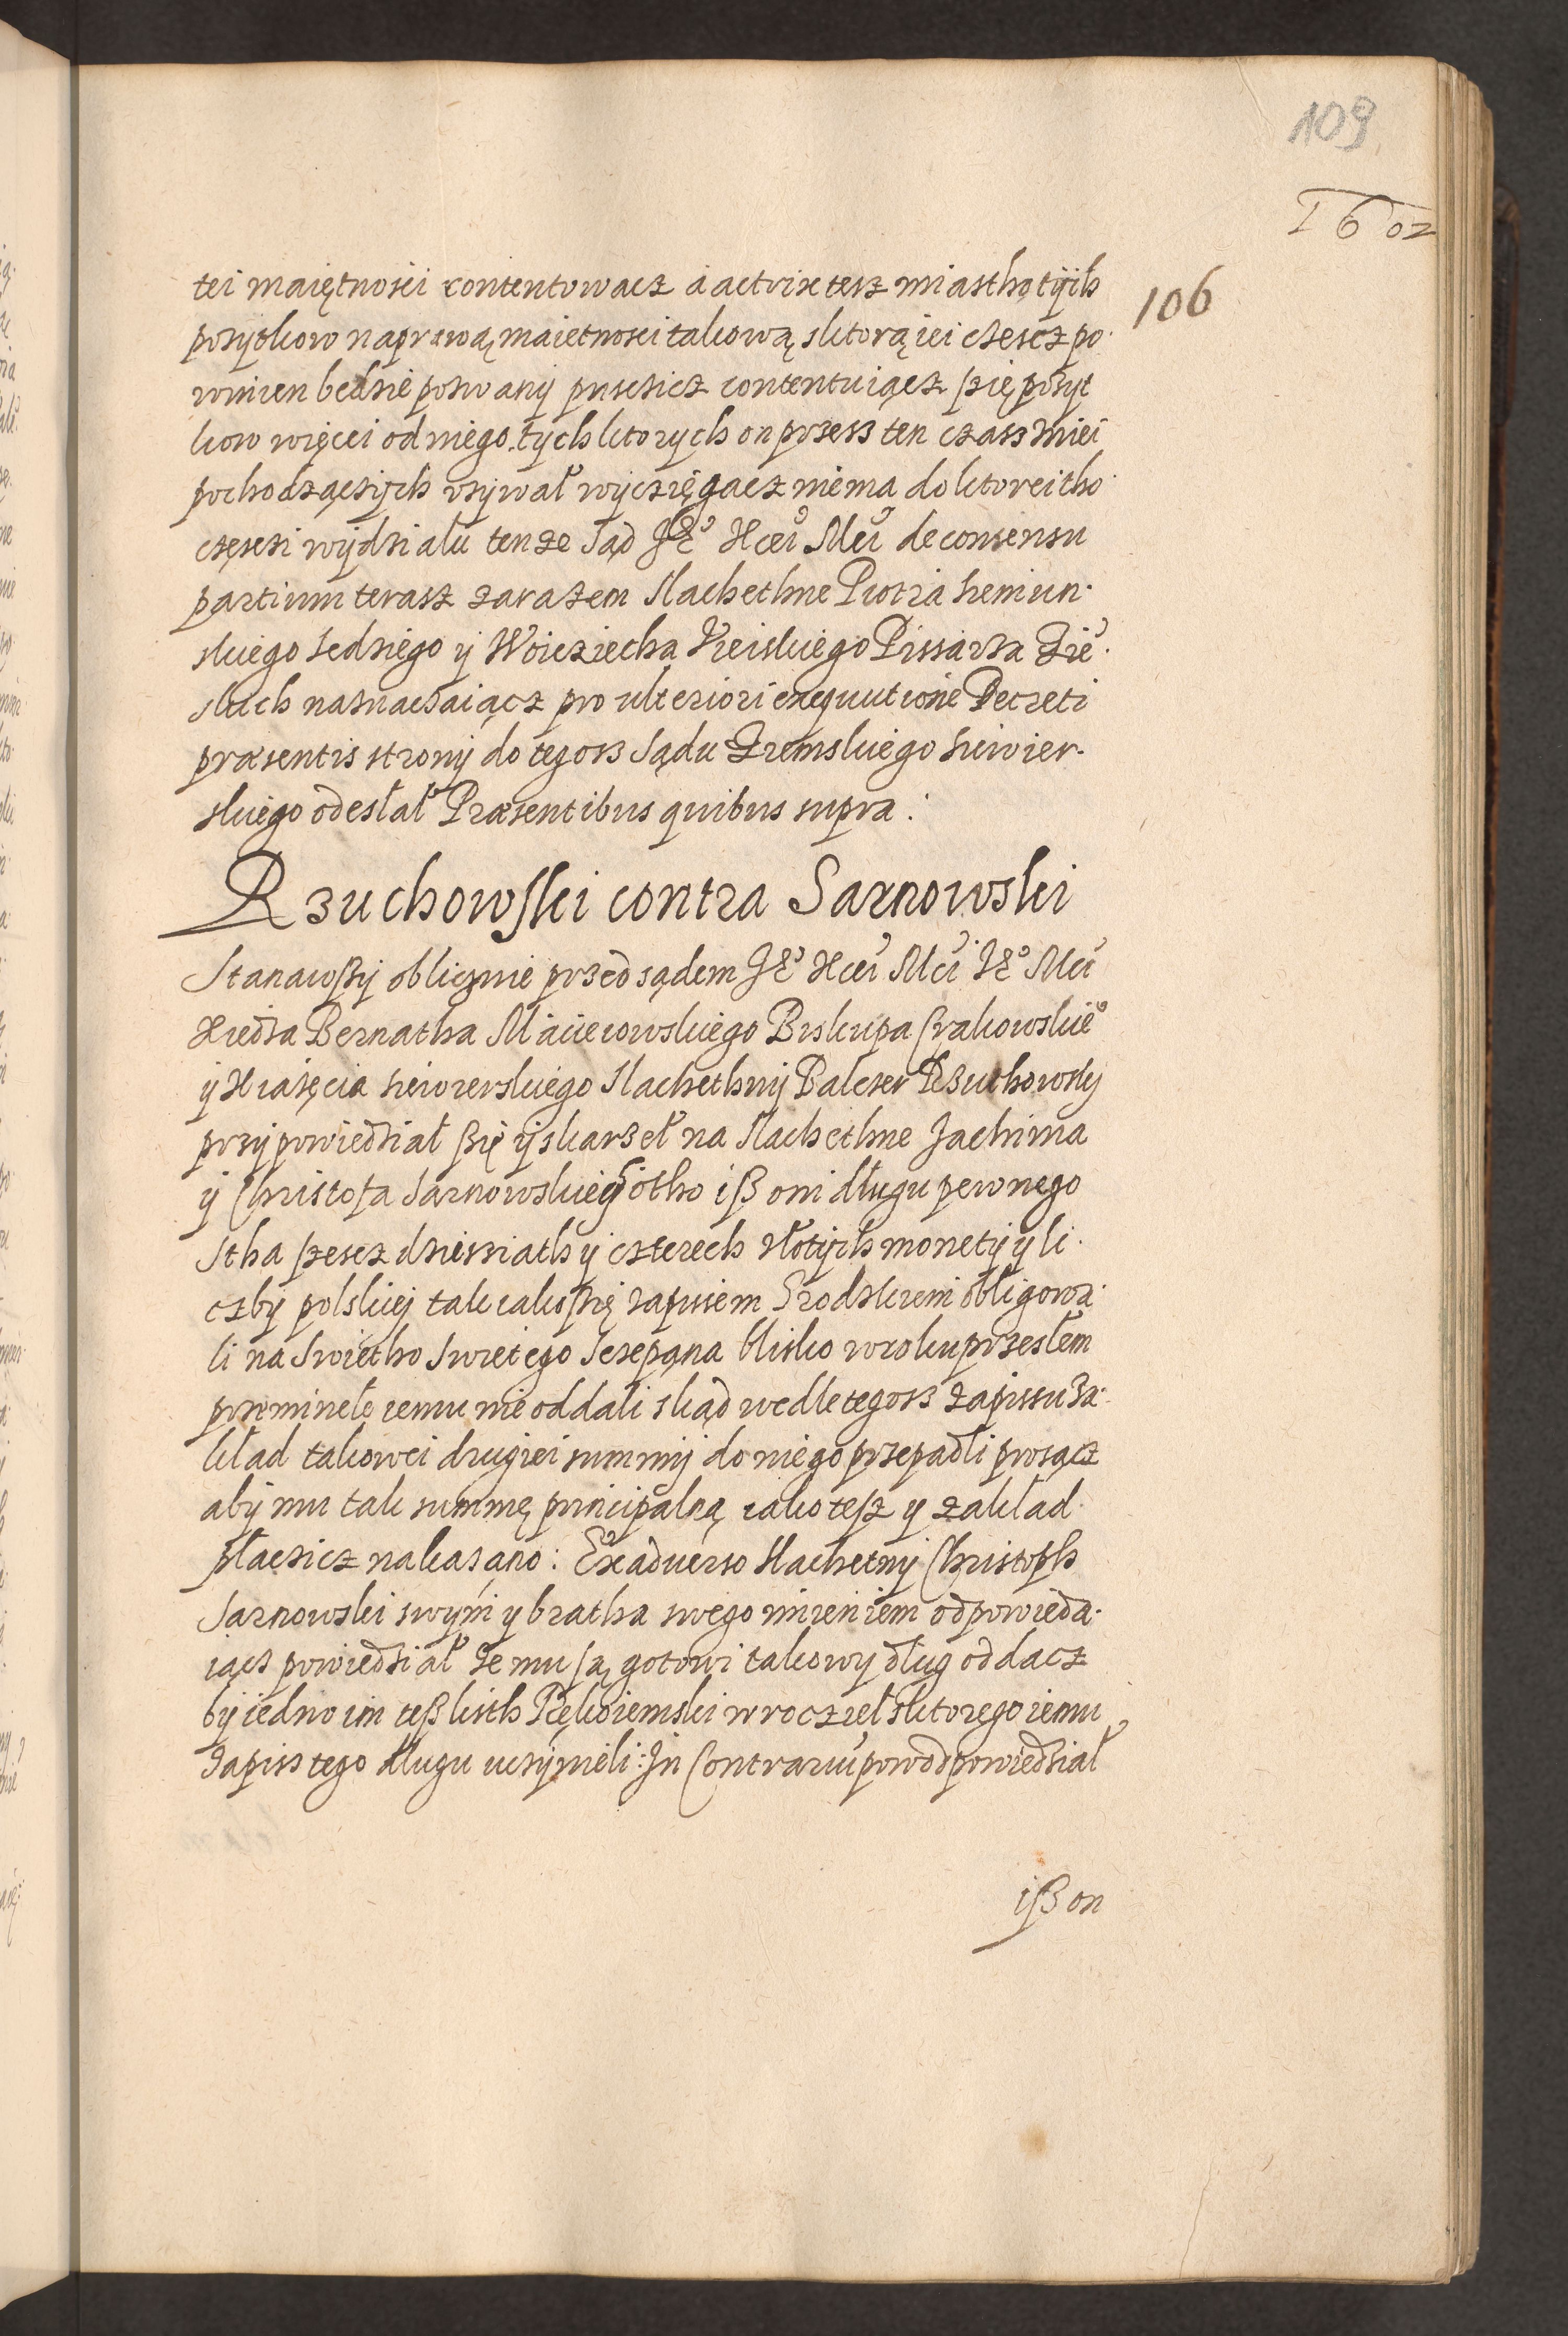 109
1602
106
tei maiętnosci contentowacz a actrix tesz miastho tÿch
pozytkow naprawą maietnosci takową sktorą iei częscz po-
winien bedzie pozwany puscicz contentuiącz szię pozyt
kow więcei od niego tych ktorych on przess ten czass zniei
pochodzączych vzywał wyczięgacz niema do ktorei tho
częsczi wydziału tenze Sąd Je° Xcei Mci de consensu
partium terasz zarazem Slachethne Piotra
skiego Sedziego y Woiciecha Kieiskiego Pissarza Zie-
skich naznaczaiącz pro ulteriori exequutione Decreti
præsentis strony do tegosz Sądu Ziemskiego Siewier-
skiego odesłał Præsentibus quibus supra:
Rzuchowski contra Sarnowski
Stanawszy oblicznie przed sądem Je° Xcei Mci Je° Mci
Xiedza Bernatha Macieiowskiego Biskupa Crakowskie°
y Xiażęcia Siewierskiego Slachethny Balcser Rzuchowsky
przypowiedział się y skarzeł na Slachethne Jachima
y Christofa Sarnowskiego otho isz oni długu pewnego
Stha szescz dziessiath y czterech złotych monety y li-
czby polskiej tak iako się zapisem Grodzkiem obligowa-
li na Swietho Swietego Sczepana blisko w roku przesłem
przeminełe iemu nie oddali skąd wedle tegosz zapissu za-
kład takowei drugiei summy do niego przepadli prosącz
aby mu tak summę principalną iako tesz y zakład
płacicz nakazano: Ex aduerso Slachetny Christoph
Sarnowski swym y bratha swego imieniem odpowieda-
iącz powiedział ze mu są gotowi takowy dług oddacz
by iedno im tesz listh Rękoiemski wrocziel sktorego iemu
zapiss tego długu uczynieli: In Contrariũ powod powiedział
isz on